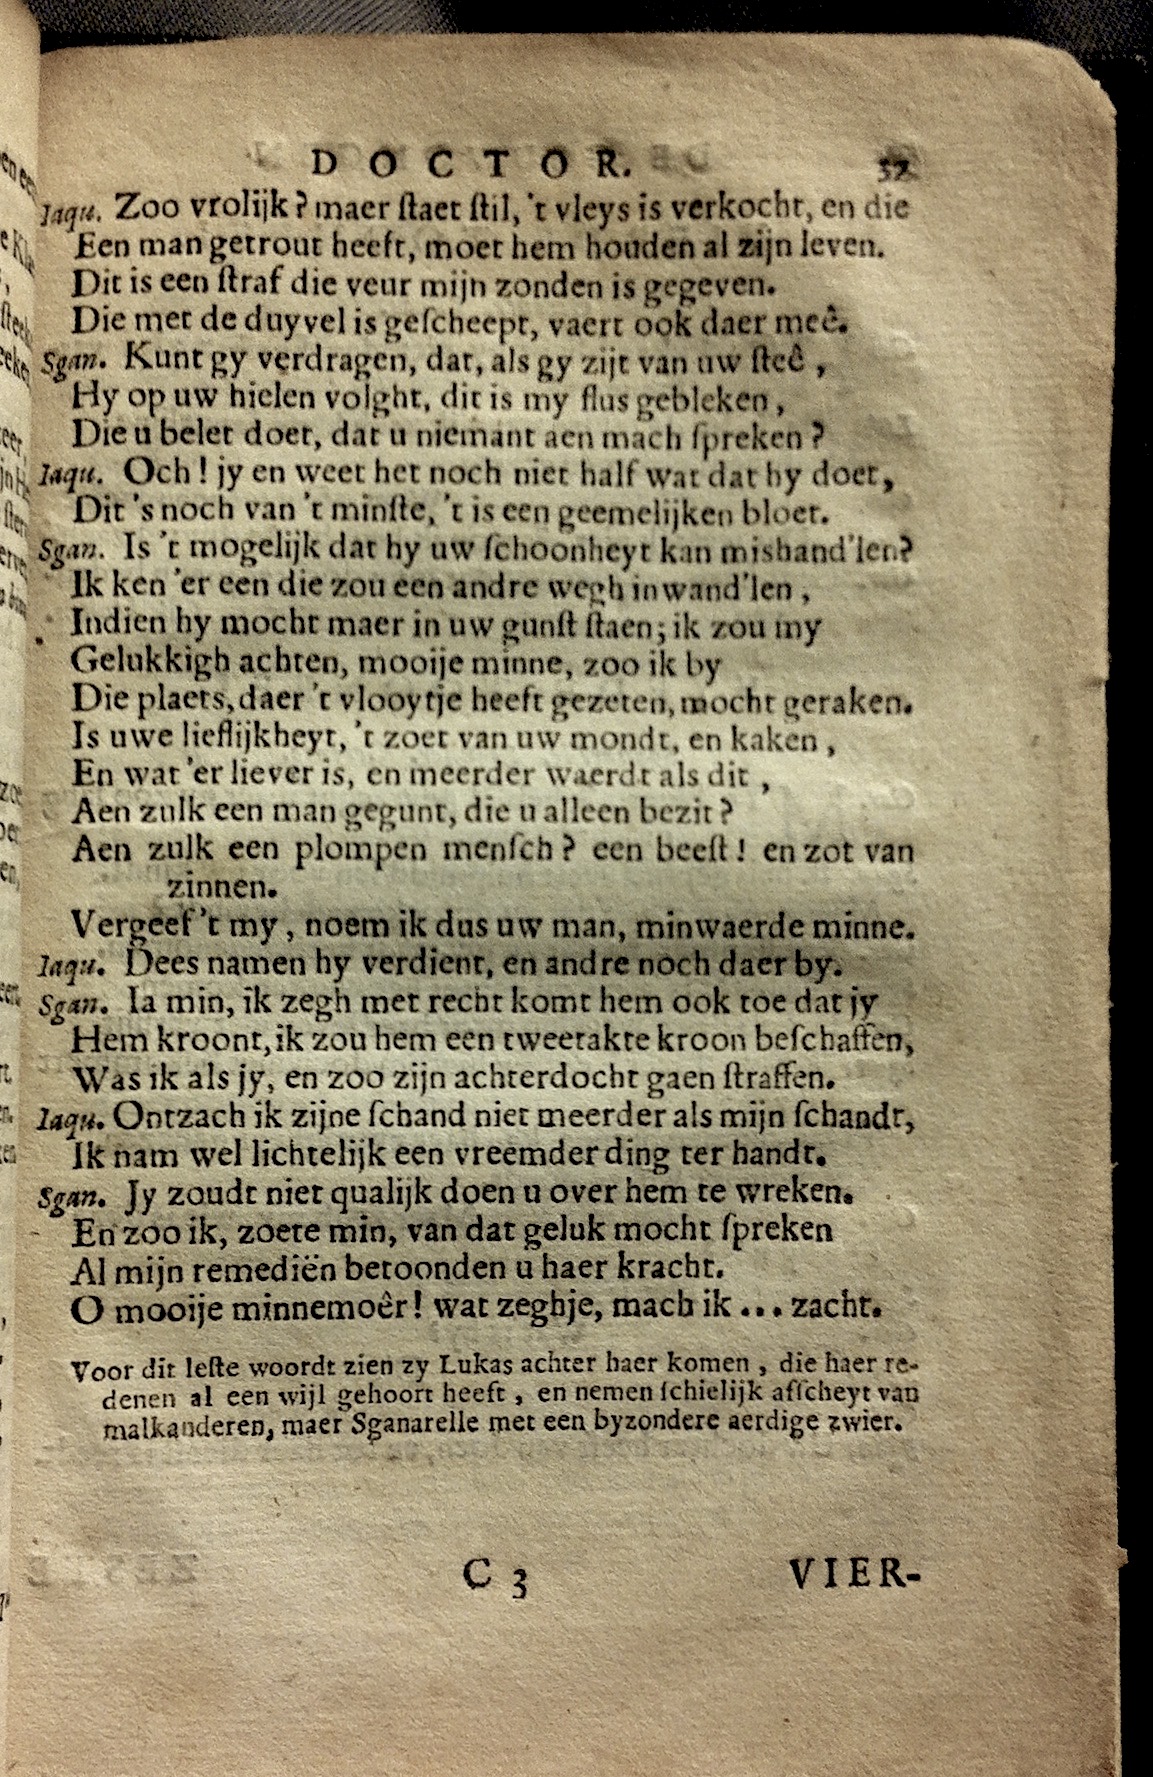 DOCTOR. 37
Iaqu. Zoo vrolijk? maer ſtaet ſtil, 't vleys is verkocht, en die
Een man getrout heeft, moet hem houden al zijn leven.
Dit is een ſtraf die veur mijn zonden is gegeven.
Die met de duyvel is geſcheept, vaert ook daer meê.
Sgan. Kunt gy verdragen, dat, als gy zijt van uw ſteê,
Hy op uw hielen volght, dit is my flus gebleken,
Die u belet doet, dat u niemant aen mach ſpreken?
Iaqu. Och! jy en weet het noch niet half wat dat hy doet,
Dit 's noch van 't minſte, 't is een geemelijken bloet.
Sgan. Is 't mogelijk dat hy uw ſchoonheyt kan mishand'len?
Ik ken 'er een die zou een andre wegh inwand'len,
Indien hy mocht maer in uw gunſt ſtaen; ik zou my
Gelukkigh achten, mooije minne, zoo ik by
Die plaets, daer 't vlooytje heeft gezeten, mocht geraken.
Is uwe lieflijkheyt, 't zoet van uw mondt, en kaken,
En wat 'er liever is, en meerder waerdt als dit,
Aen zulk een man gegunt, die u alleen bezit?
Aen zulk een plompen menſch? een beeſt! en zot van
zinnen.
Vergeef 't my, noem ik dus uw man, minwaerde minne.
Iaqu. Dees namen hy verdient, en andre noch daer by.
Sgan. Ia min, ik zegh met recht komt hem ook toe dat jy
Hem kroont, ik zou hem een tweetakte kroon beſchaffen,
Was ik als jy, en zoo zijn achterdocht gaen ſtraffen.
Iaqu. Ontzach ik zijne ſchand niet meerder als mijn ſchandt,
Ik nam wel lichtelijk een vreemder ding ter handt.
Sgan. Jy zoudt niet qualijk doen u over hem te wreken.
En zoo ik, zoete min, van dat geluk mocht ſpreken
Al mijn remediën betoonden u haer kracht.
O mooije minnemoêr! wat zeghje, mach ik ... zacht.
Voor dit leſte woordt zien zy Lukas achter haer komen, die haer re-
denen al een wijl gehoort heeft, en nemen ſchielijk afſcheyt van
malkanderen, maer Sganarelle met een byzondere aerdige zwier.
C 3 VIER-